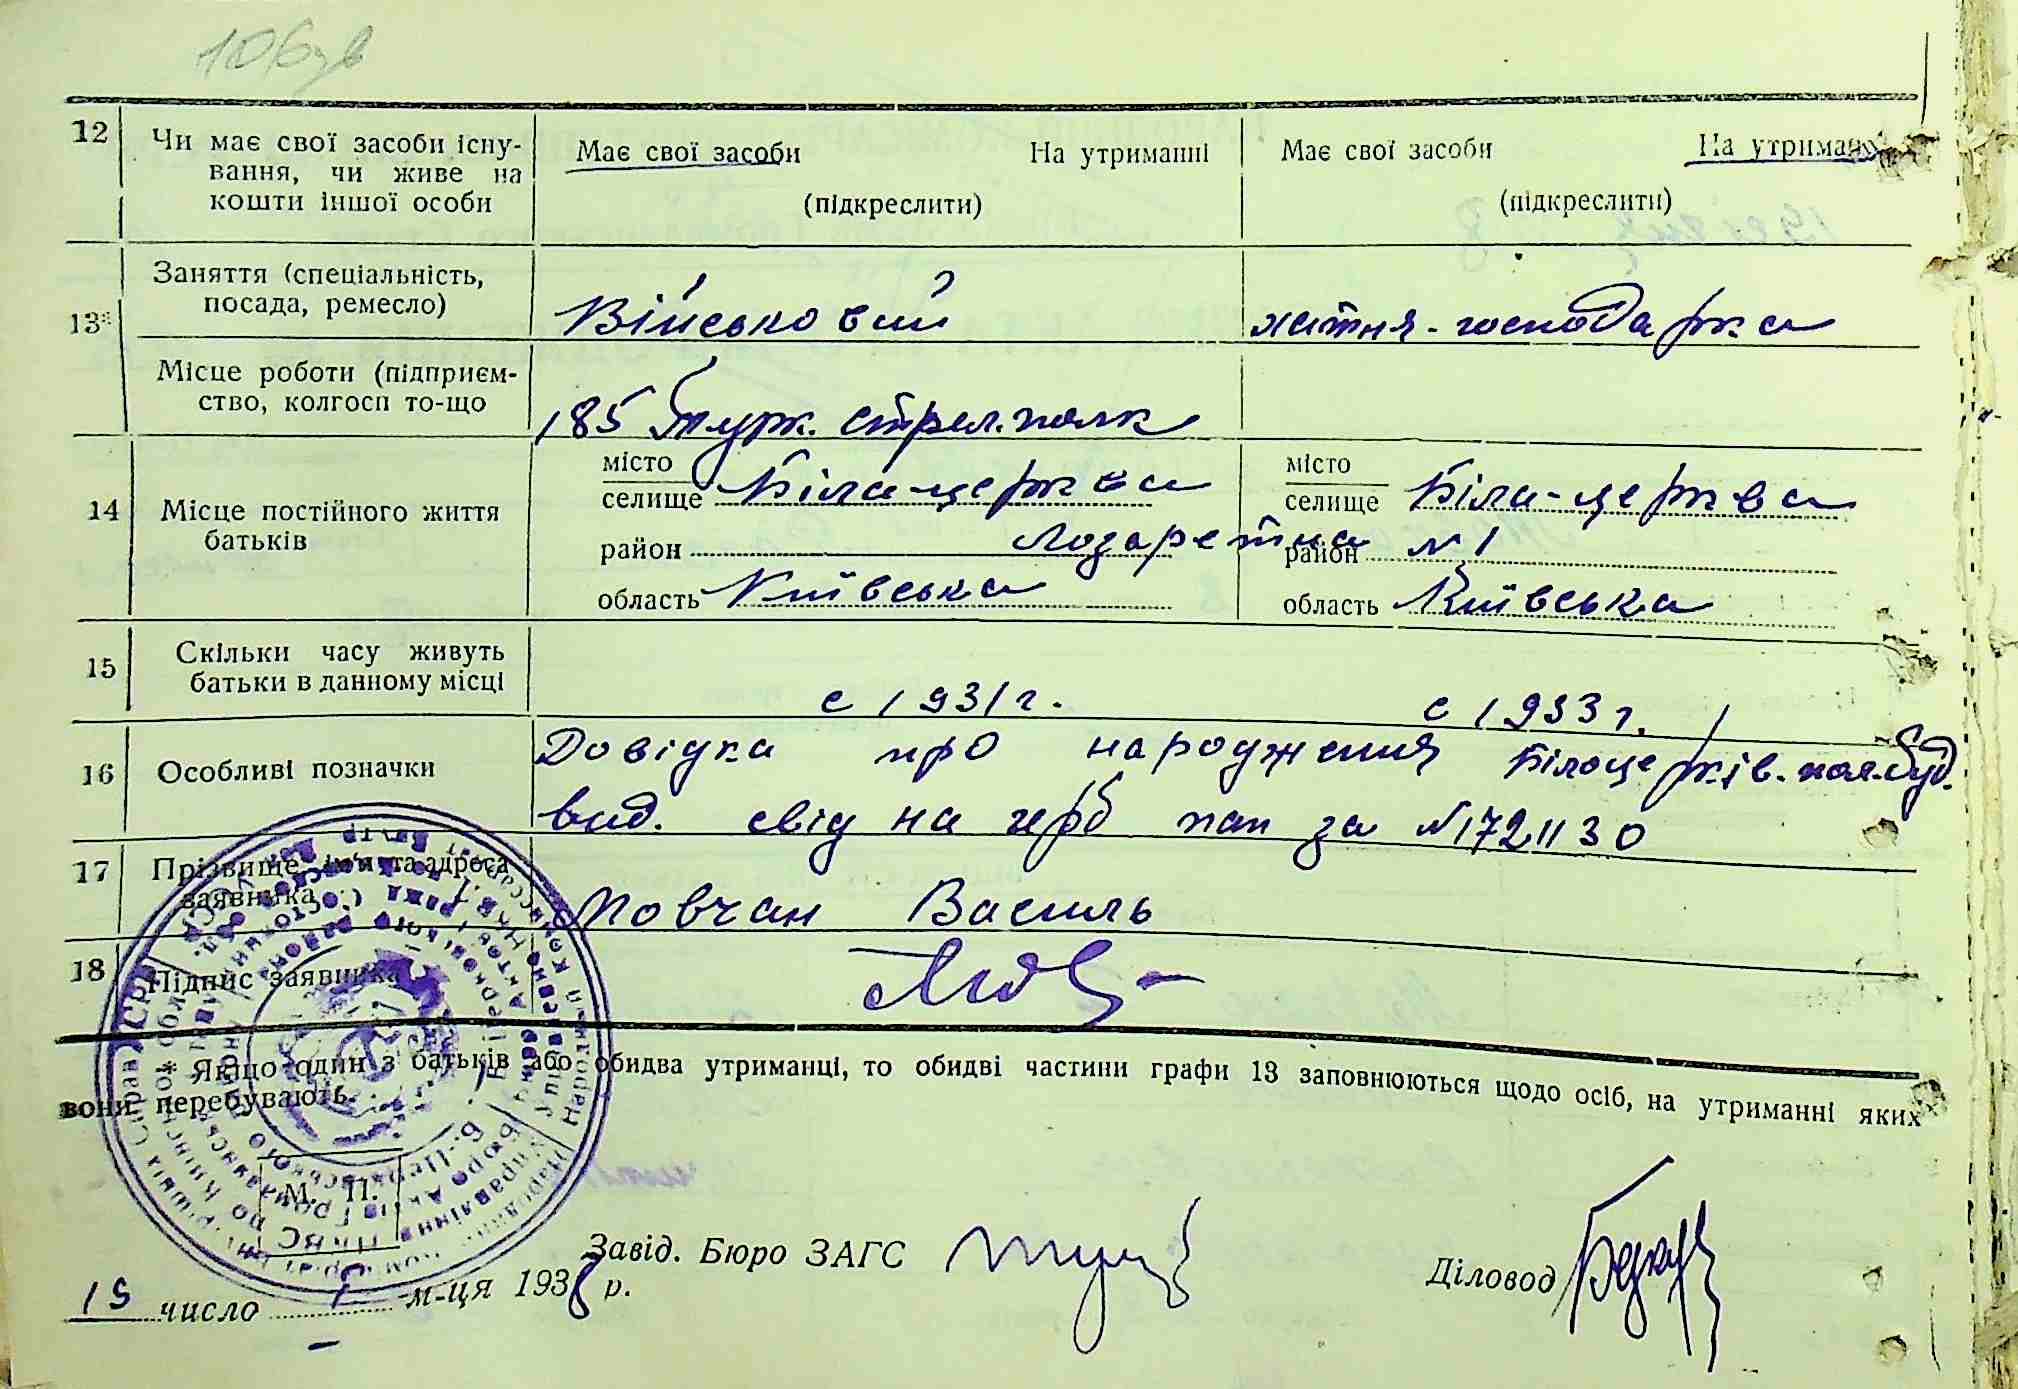 12 Чи має свої засоби існу- Має свої засоби На утриманні Має свої засоби На утриман
вання, чи живе на
кошти іншої особи (підкреслити) (підкреслити)
Заняття (спеціальність,
13* посада, ремесло) Військовий хатня-господарка
Місце роботи (підприєм-
ство, колгосп то-що 185 Турк. стрел. полк
місто місто
14 Місце постійного життя селище Біла-церква селище Біла-церква
батьків район Лозаретна район №1
область Київська область Київська
15 Скільки часу живуть
батьки в данному місці с 1931 г. с 1933 г.
16 Особливі позначки Довідка про народження Білоцерків. пол.буд.
вид. свід на герб пап за №1721130
17 Прізвище, ім'я та адреса
заявника Мовчан Василь
18 Підпис заявника
* Якщо один з батьків або обидва утриманці, то обидві частини графи 13 заповнюються щодо осіб, на утриманні яких
вони перебувають.
М. П.
Завід. Бюро ЗАГС Діловод
15 число 1 м-ця 1938 р.